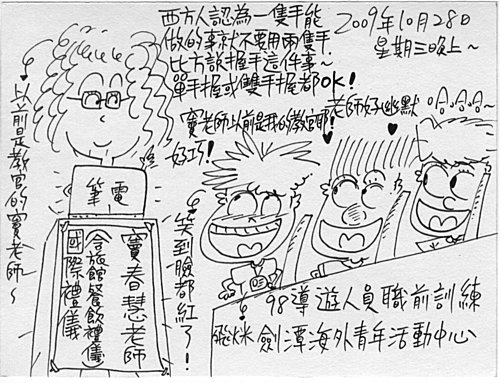 西方人認為一隻手能
做的事就不要用兩隻手
比方說握手這件事~
單手握或雙手握都OK!
2009年10月28日
星期三晚上~
竇老師以前是我的教官耶!
好巧!
老師好幽默
哈哈哈~
以前是教官的竇老師~
筆電
竇春慧老師
國際禮儀
(含旅館餐飲禮儀)
笑到臉都紅了!
98導遊人員職前訓練
劍潭海外青年活動中心